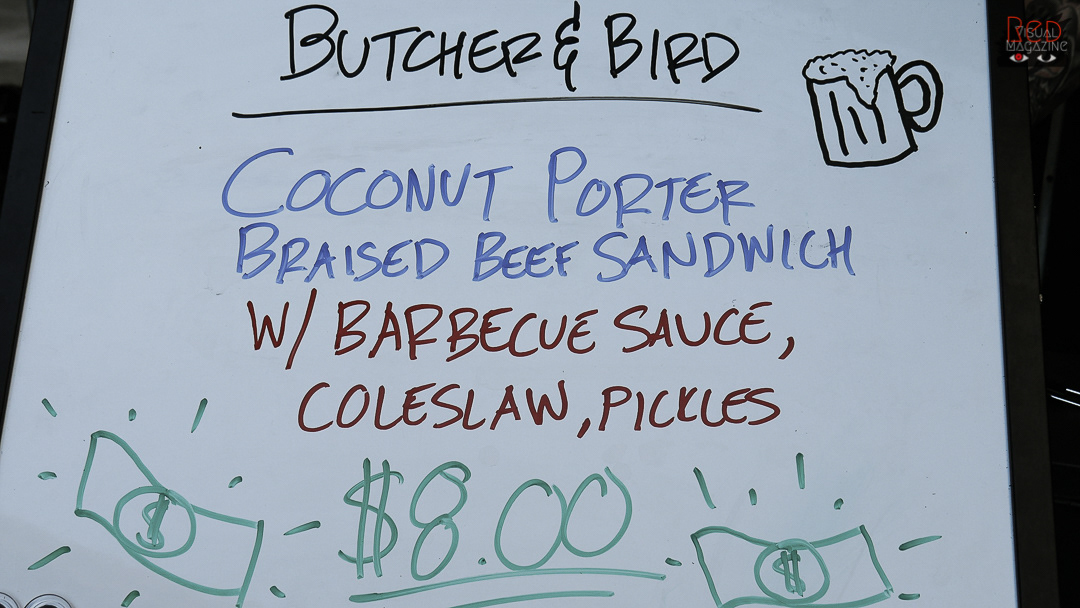 BUTCHER & BIRD
COCONUT PORTER
BRAISED BEEF SANDWICH
W/ BARBECUE SAUCE,
COLESLAW, PICKLES
$8.00
$
$
RED
VISUAL
MAGAZINE